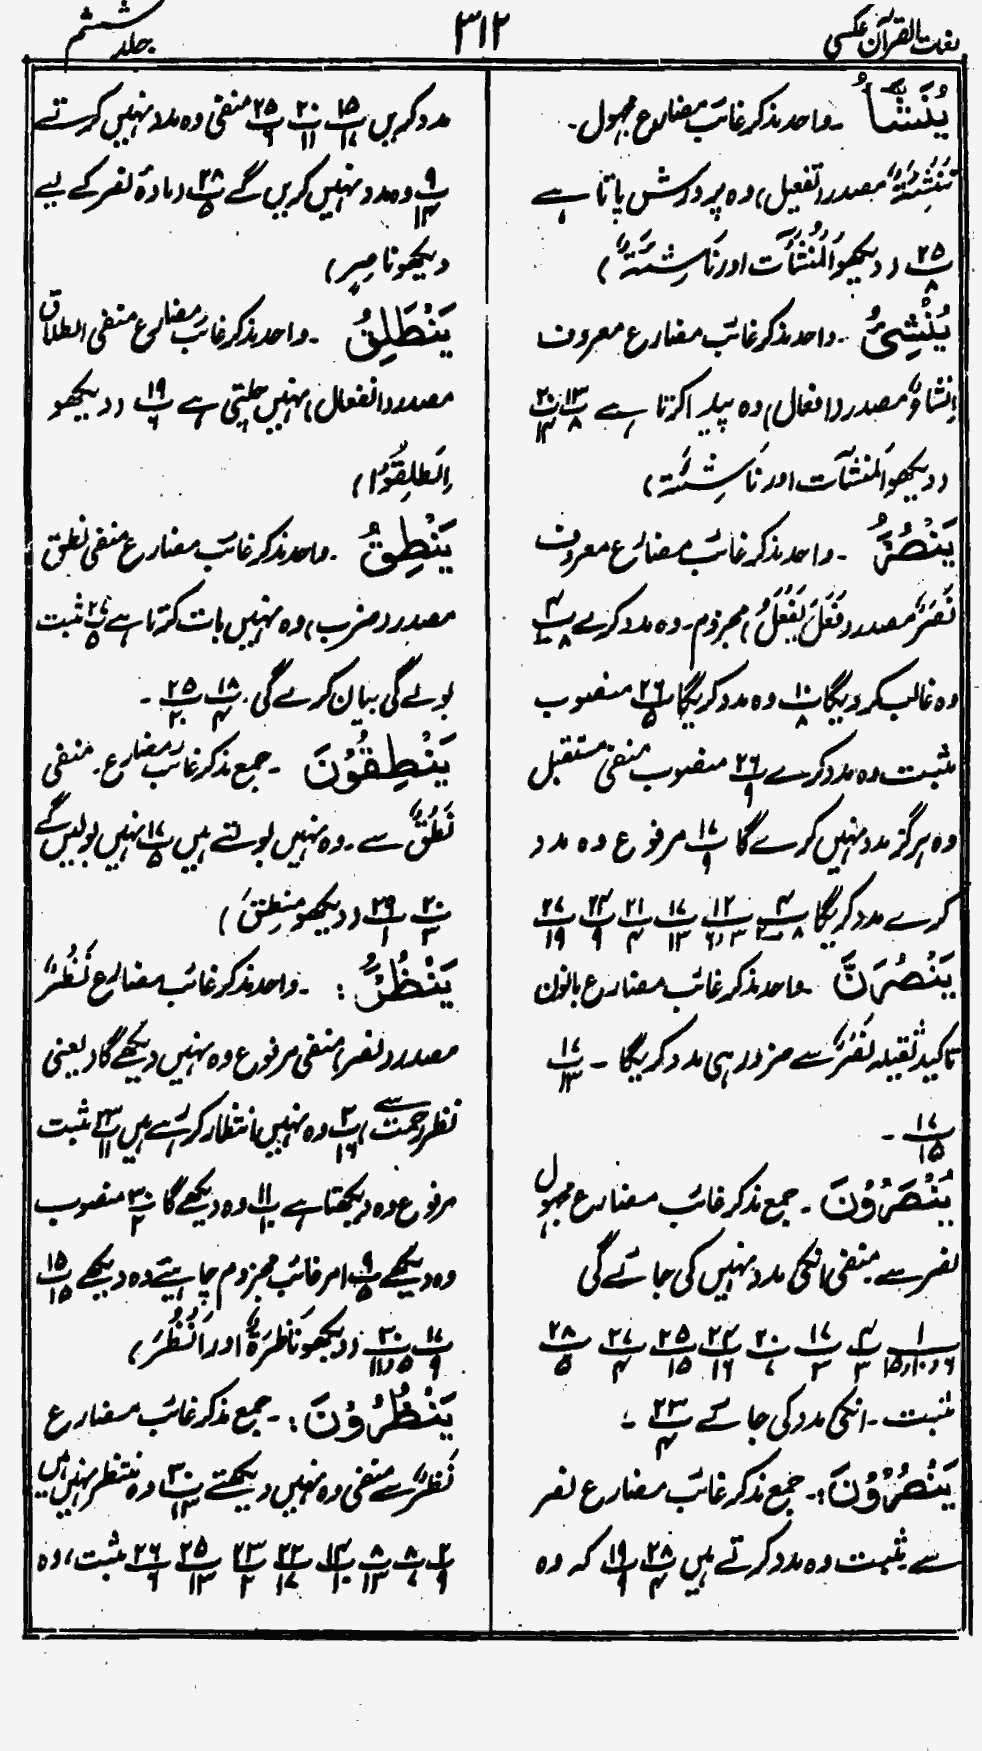 لغات القرآن عکسی
۳۱۲
جلد ششم
یُنَشَّأُ ۔ واحد مذکر غائب مضارع مجہول۔
تَنْشِئَۃٌ مصدر (تفعیل) وہ پرورش پاتا ہے
۲۵/۸ (دیکھو اَلْمُنْشَآت اور نَاشِئَۃ)
یُنْشِئُ ۔ واحد مذکر غائب مضارع معروف
اِنْشَاءٌ مصدر (افعال) وہ پیدا کرتا ہے ۱۳/۸ ۲۰/۱۴
(دیکھو اَلْمُنْشَآت اور نَاشِئَۃ)
یَنْصُرُ ۔ واحد مذکر غائب مضارع معروف
نَصْرٌ مصدر (فَعَلَ یَفْعُلُ) مجزوم۔ وہ مدد کرے ۴/۸
وہ غالب کر دیگا ۱۰/۸ وہ مدد کریگا ۲۶/۵ منصوب
مثبت وہ مدد کرے ۲۶/۹ منصوب منفی مستقبل
وہ ہرگز مدد نہیں کرے گا ۱۷/۹ مرفوع وہ مدد
کرے مدد کریگا ۴/۸ ۱۲/۳،۶ ۱۷/۱۳ ۲۱/۴ ۲۴/۹ ۲۷/۱۹
یَنْصُرَنَّ ۔ واحد مذکر غائب مضارع بانون
تاکید ثقیلہ نَصْرٌ سے ضرور ہی مدد کریگا ۔ ۱۷/۱۳
۱۷/۱۵ ۔
یُنْصَرُوْنَ ۔ جمع مذکر غائب مضارع مجہول
نصر سے منفی انکی مدد نہیں کی جائے گی
۱/۶،۱۰،۱۵ ۴/۳ ۱۷/۳ ۲۰/۷ ۲۴/۱۶ ۲۵/۱۵ ۲۷/۴ ۲۸/۵
مثبت۔ انکی مدد کی جائے ۲۳/۴ ۔
یَنْصُرُوْنَ:۔ جمع مذکر غائب مضارع نصر
سے مثبت وہ مدد کرتے ہیں ۲۸/۴ ۱۹/۹ کہ وہ
مدد کریں ۱۵/۱۷ ۲۰/۱۱ ۲۵/۶ منفی وہ مدد نہیں کرتے
۹/۱۴ وہ مدد نہیں کریں گے ۲۸/۵ (مادۂ نصر کے لیے
دیکھو ناصِر)
یَنْطَلِقُ ۔ واحد مذکر غائب مضارع منفی انطلاق
مصدر (انفعال) نہیں چلتی ہے ۱۹/۶ (دیکھو
اِنْطَلِقُوْا)
یَنْطِقُ ۔ واحد مذکر غائب مضارع منفی نطق
مصدر (ضرب) وہ نہیں بات کرتا ہے ۲۷/۵ مثبت
بولے گی بیان کرے گی۔ ۱۸/۴ ۲۵/۲۰ ۔
یَنْطِقُوْنَ ۔ جمع مذکر غائب مضارع۔ منفی
نُطْقٌ سے ۔ وہ نہیں بولتے ہیں ۱۷/۵ نہیں بولیں گے
۲۰/۳ ۲۹/۱ (دیکھو منطِق)
یَنْظُرُ: ۔ واحد مذکر غائب مضارع نَظَرٌ
مصدر (نصر) منفی مرفوع وہ نہیں دیکھے گا (یعنی
نظرِ رحمت سے) ۳/۱۶ وہ نہیں انتظار کر رہے ہیں ۲۳/۱۱ مثبت
مرفوع وہ دیکھتا ہے ۱۱/۱۰ وہ دیکھے گا ۳۰/۲ منصوب
وہ دیکھے ۹/۵ امر غائب مجزوم چاہیئے وہ دیکھے ۱۵/۱۵
۱۷/۹ ۳۰/۵،۱۱ (دیکھو نَاظِرَۃٌ اور اُنْظُرْ)
یَنْظُرُوْنَ:۔ جمع مذکر غائب مضارع
نَظَرٌ سے منفی وہ نہیں دیکھتے ۳۰/۱۳ وہ منتظر نہیں ہیں
۲/۹ ۸/۷ ۸/۱۳ ۱۴/۱۰ ۲۲/۱۷ ۲۳/۲ ۲۵/۱۳ ۲۶/۶ مثبت، وہ